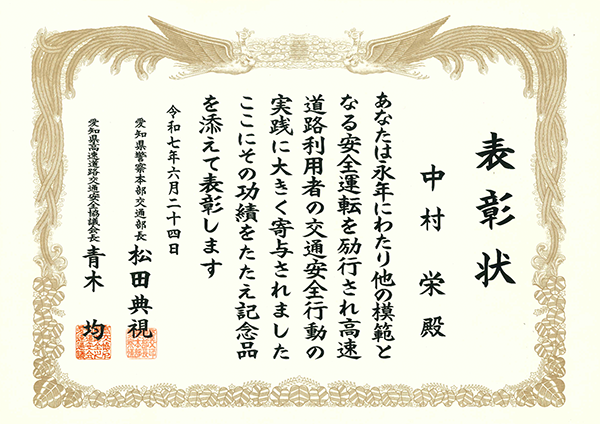 表彰状
中村 栄 殿
あなたは永年にわたり他の模範と
なる安全運転を励行され高速
道路利用者の交通安全行動の
実践に大きく寄与されました
ここにその功績をたたえ記念品
を添えて表彰します
令和七年六月二十四日
愛知県警察本部交通部長 松田典視
愛知県高速道路交通安全協議会長 青木 均